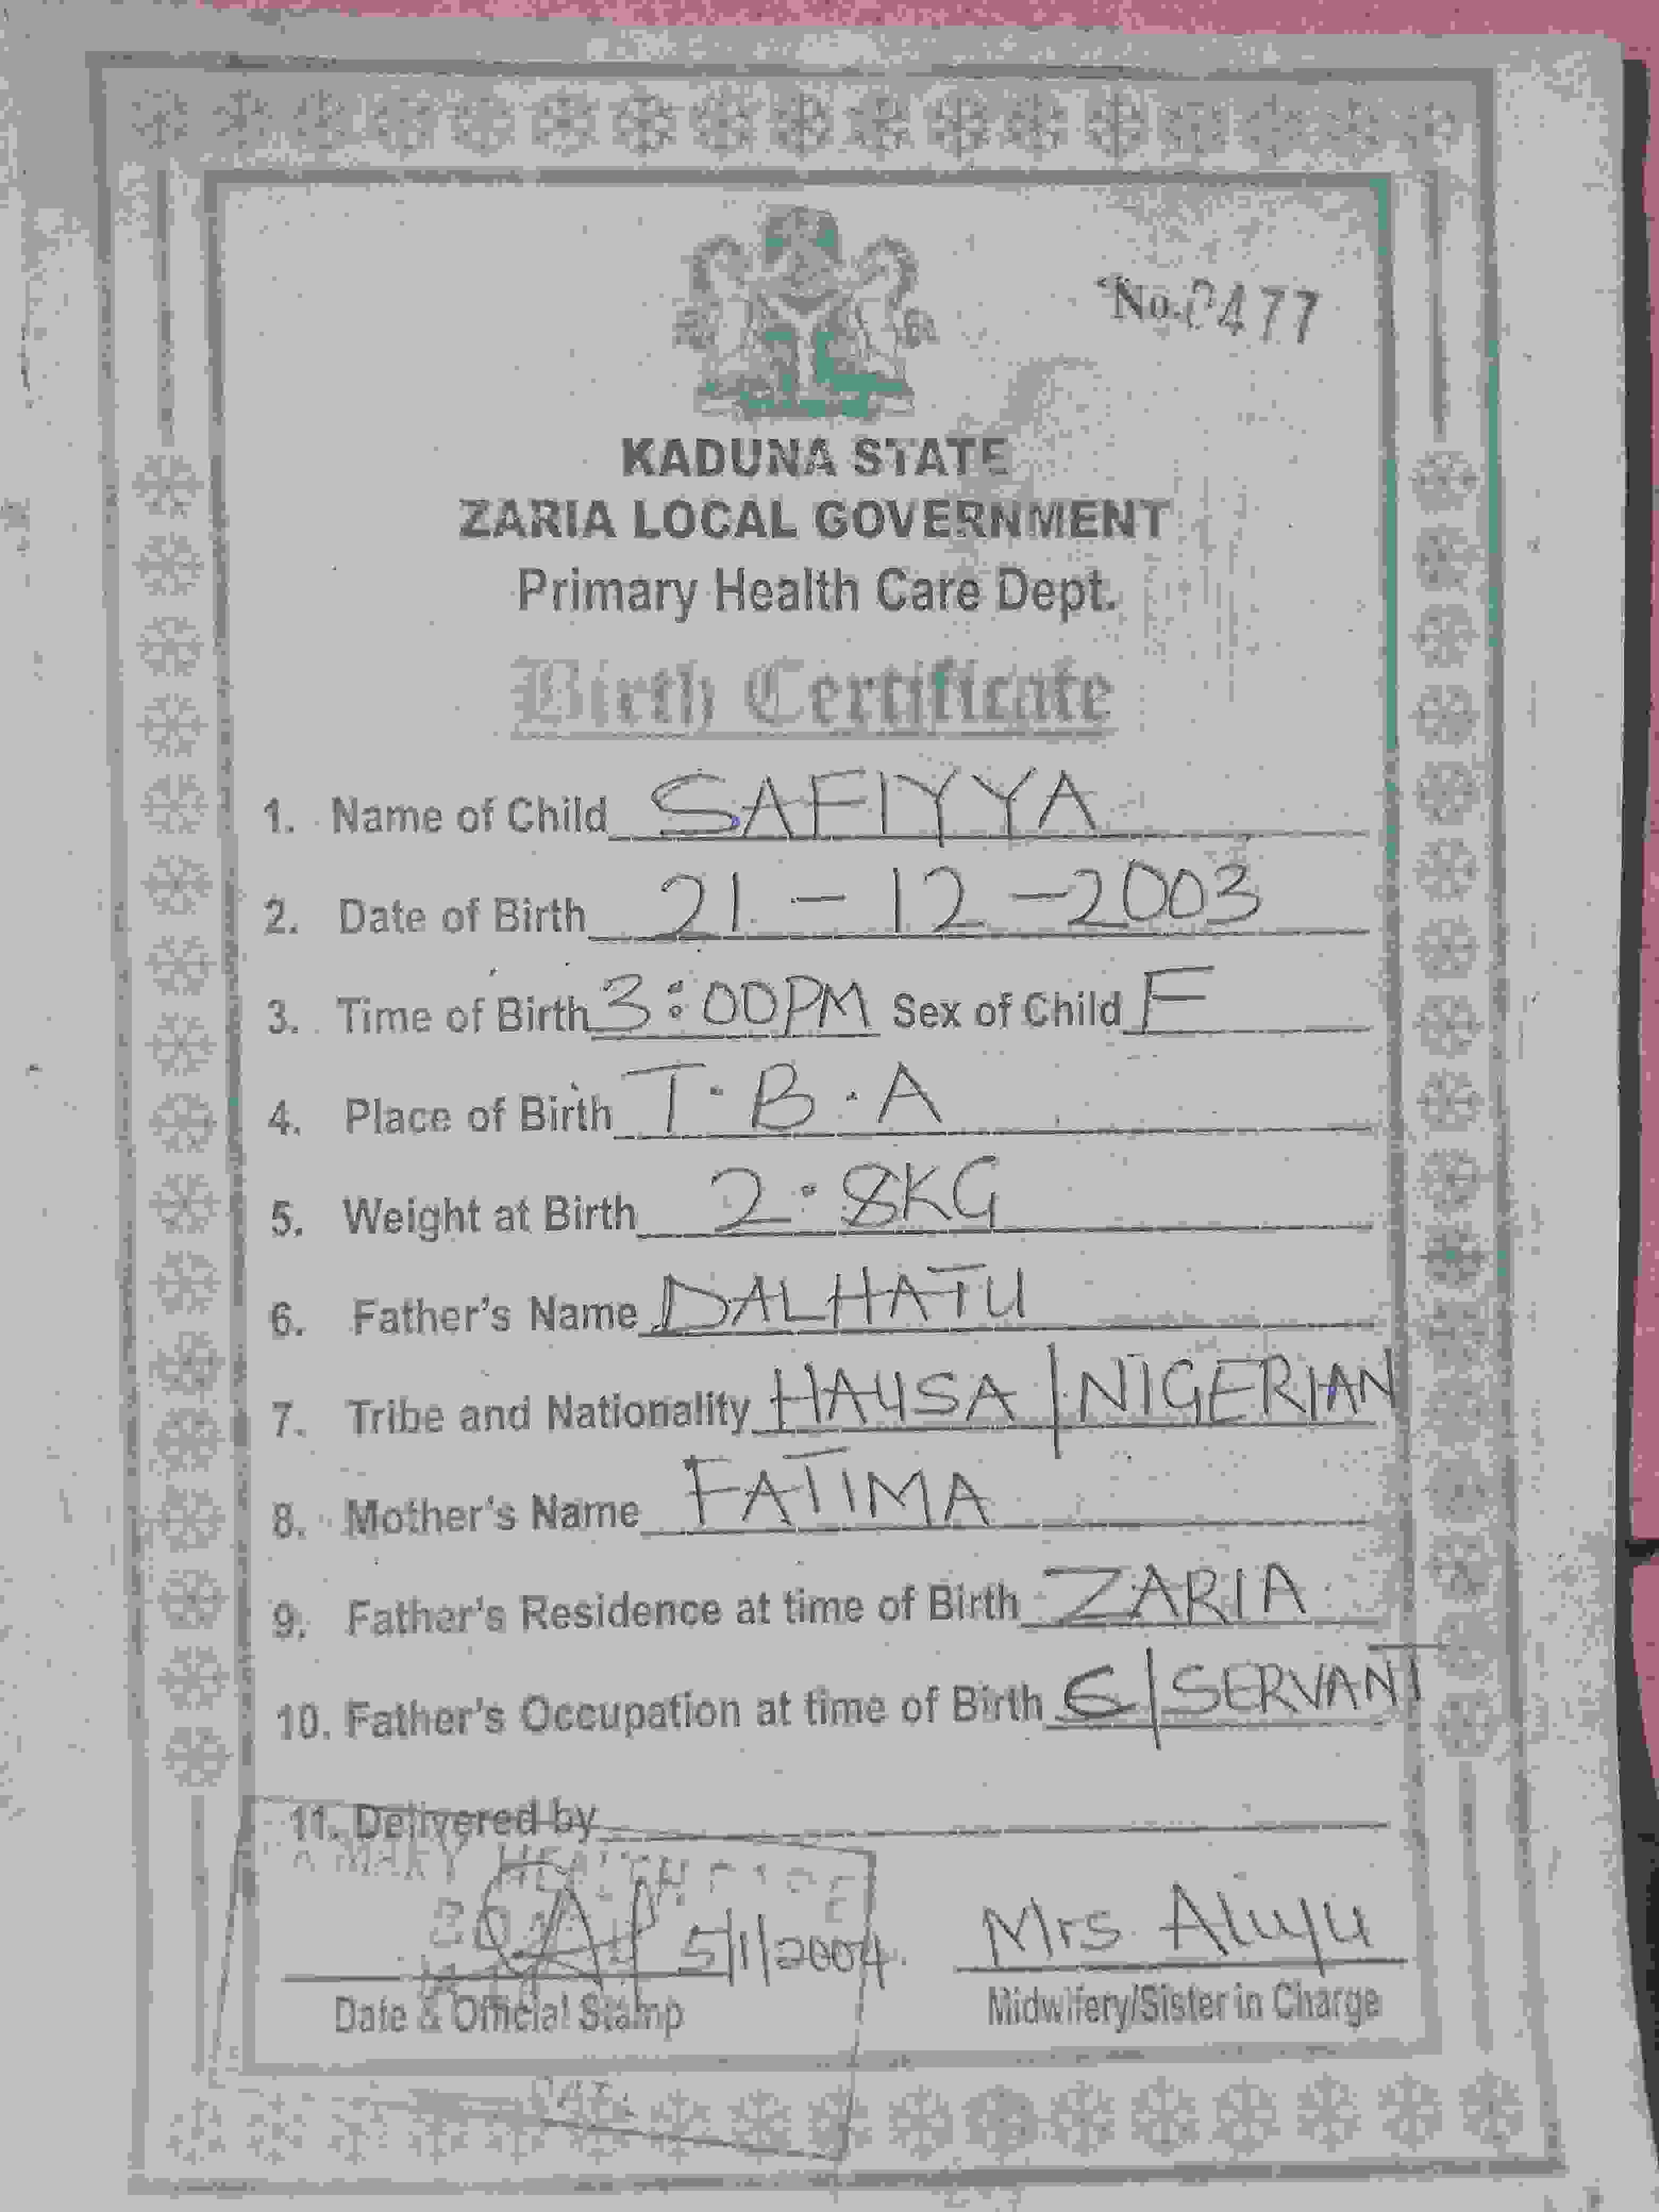 No. 0477
KADUNA STATE
ZARIA LOCAL GOVERNMENT
Primary Health Care Dept.
Birth Certificate
1. Name of Child SAFIYYA
2. Date of Birth 21-12-2003
3. Time of Birth 3:00PM Sex of Child F
4. Place of Birth T.B.A
5. Weight at Birth 2.8KG
6. Father's Name DALHATU
7. Tribe and Nationality HAUSA | NIGERIAN
8. Mother's Name FATIMA
9. Father's Residence at time of Birth ZARIA
10. Father's Occupation at time of Birth C|SERVANT
11. Delivered by
HEALTH
5/1/2004. Mrs Aliyu
Date & Official Stamp Midwifery/Sister in Charge